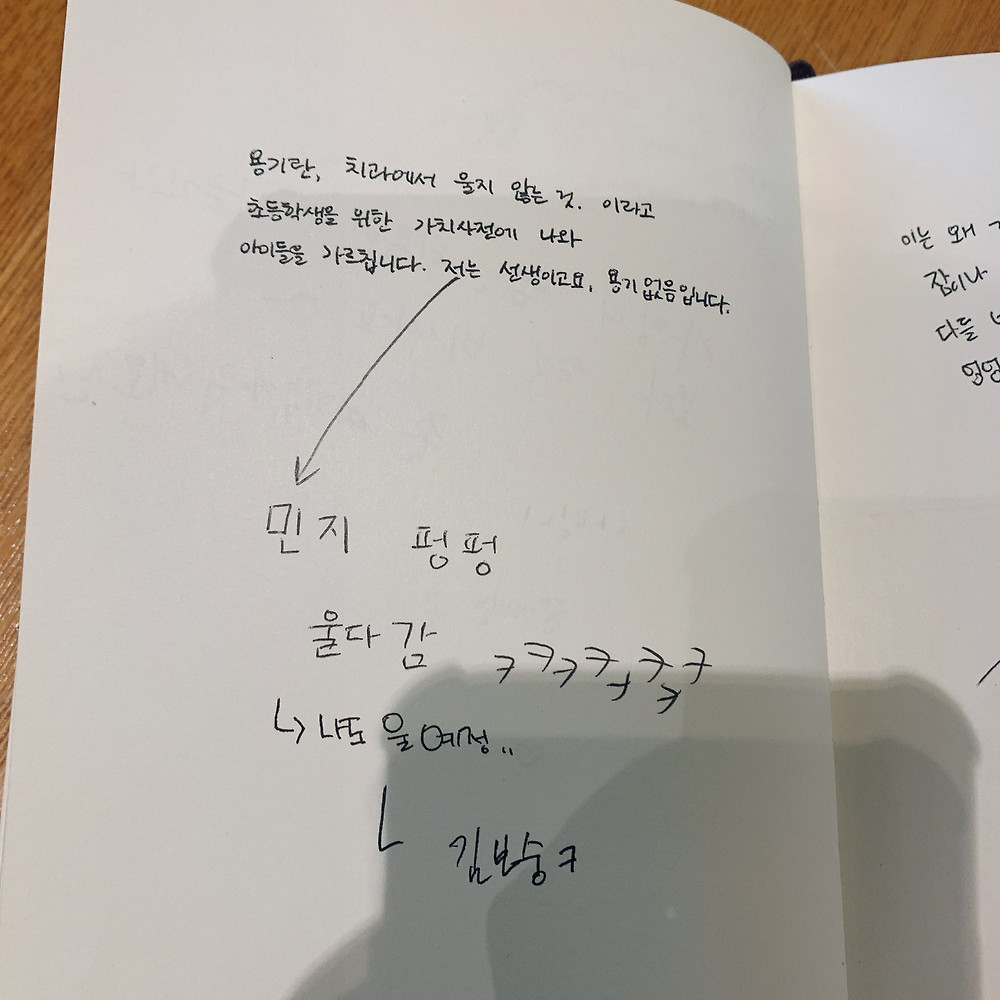 용기란, 치과에서 울지 않는 것. 이라고
초등학생을 위한 가치사전에 나와
아이들을 가르칩니다. 저는 선생이고요, 용기없음입니다.
민지 펑펑
울다감 ㅋㅋㅋㅋㅋㅋㅋㅋ
↳ 나도 울 예정..
ㄴ 김보숭ㅋ
이는 왜
잠이나
다들
엉엉